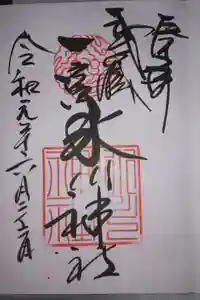 奉拝
武蔵
一宮氷川神社
令和元年六月